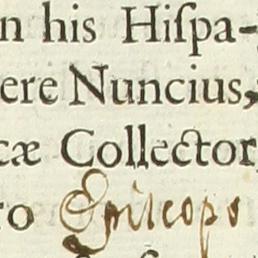 n his Hiſpa-
ere Nuncius,
cæ Collector,
ro Episcopo